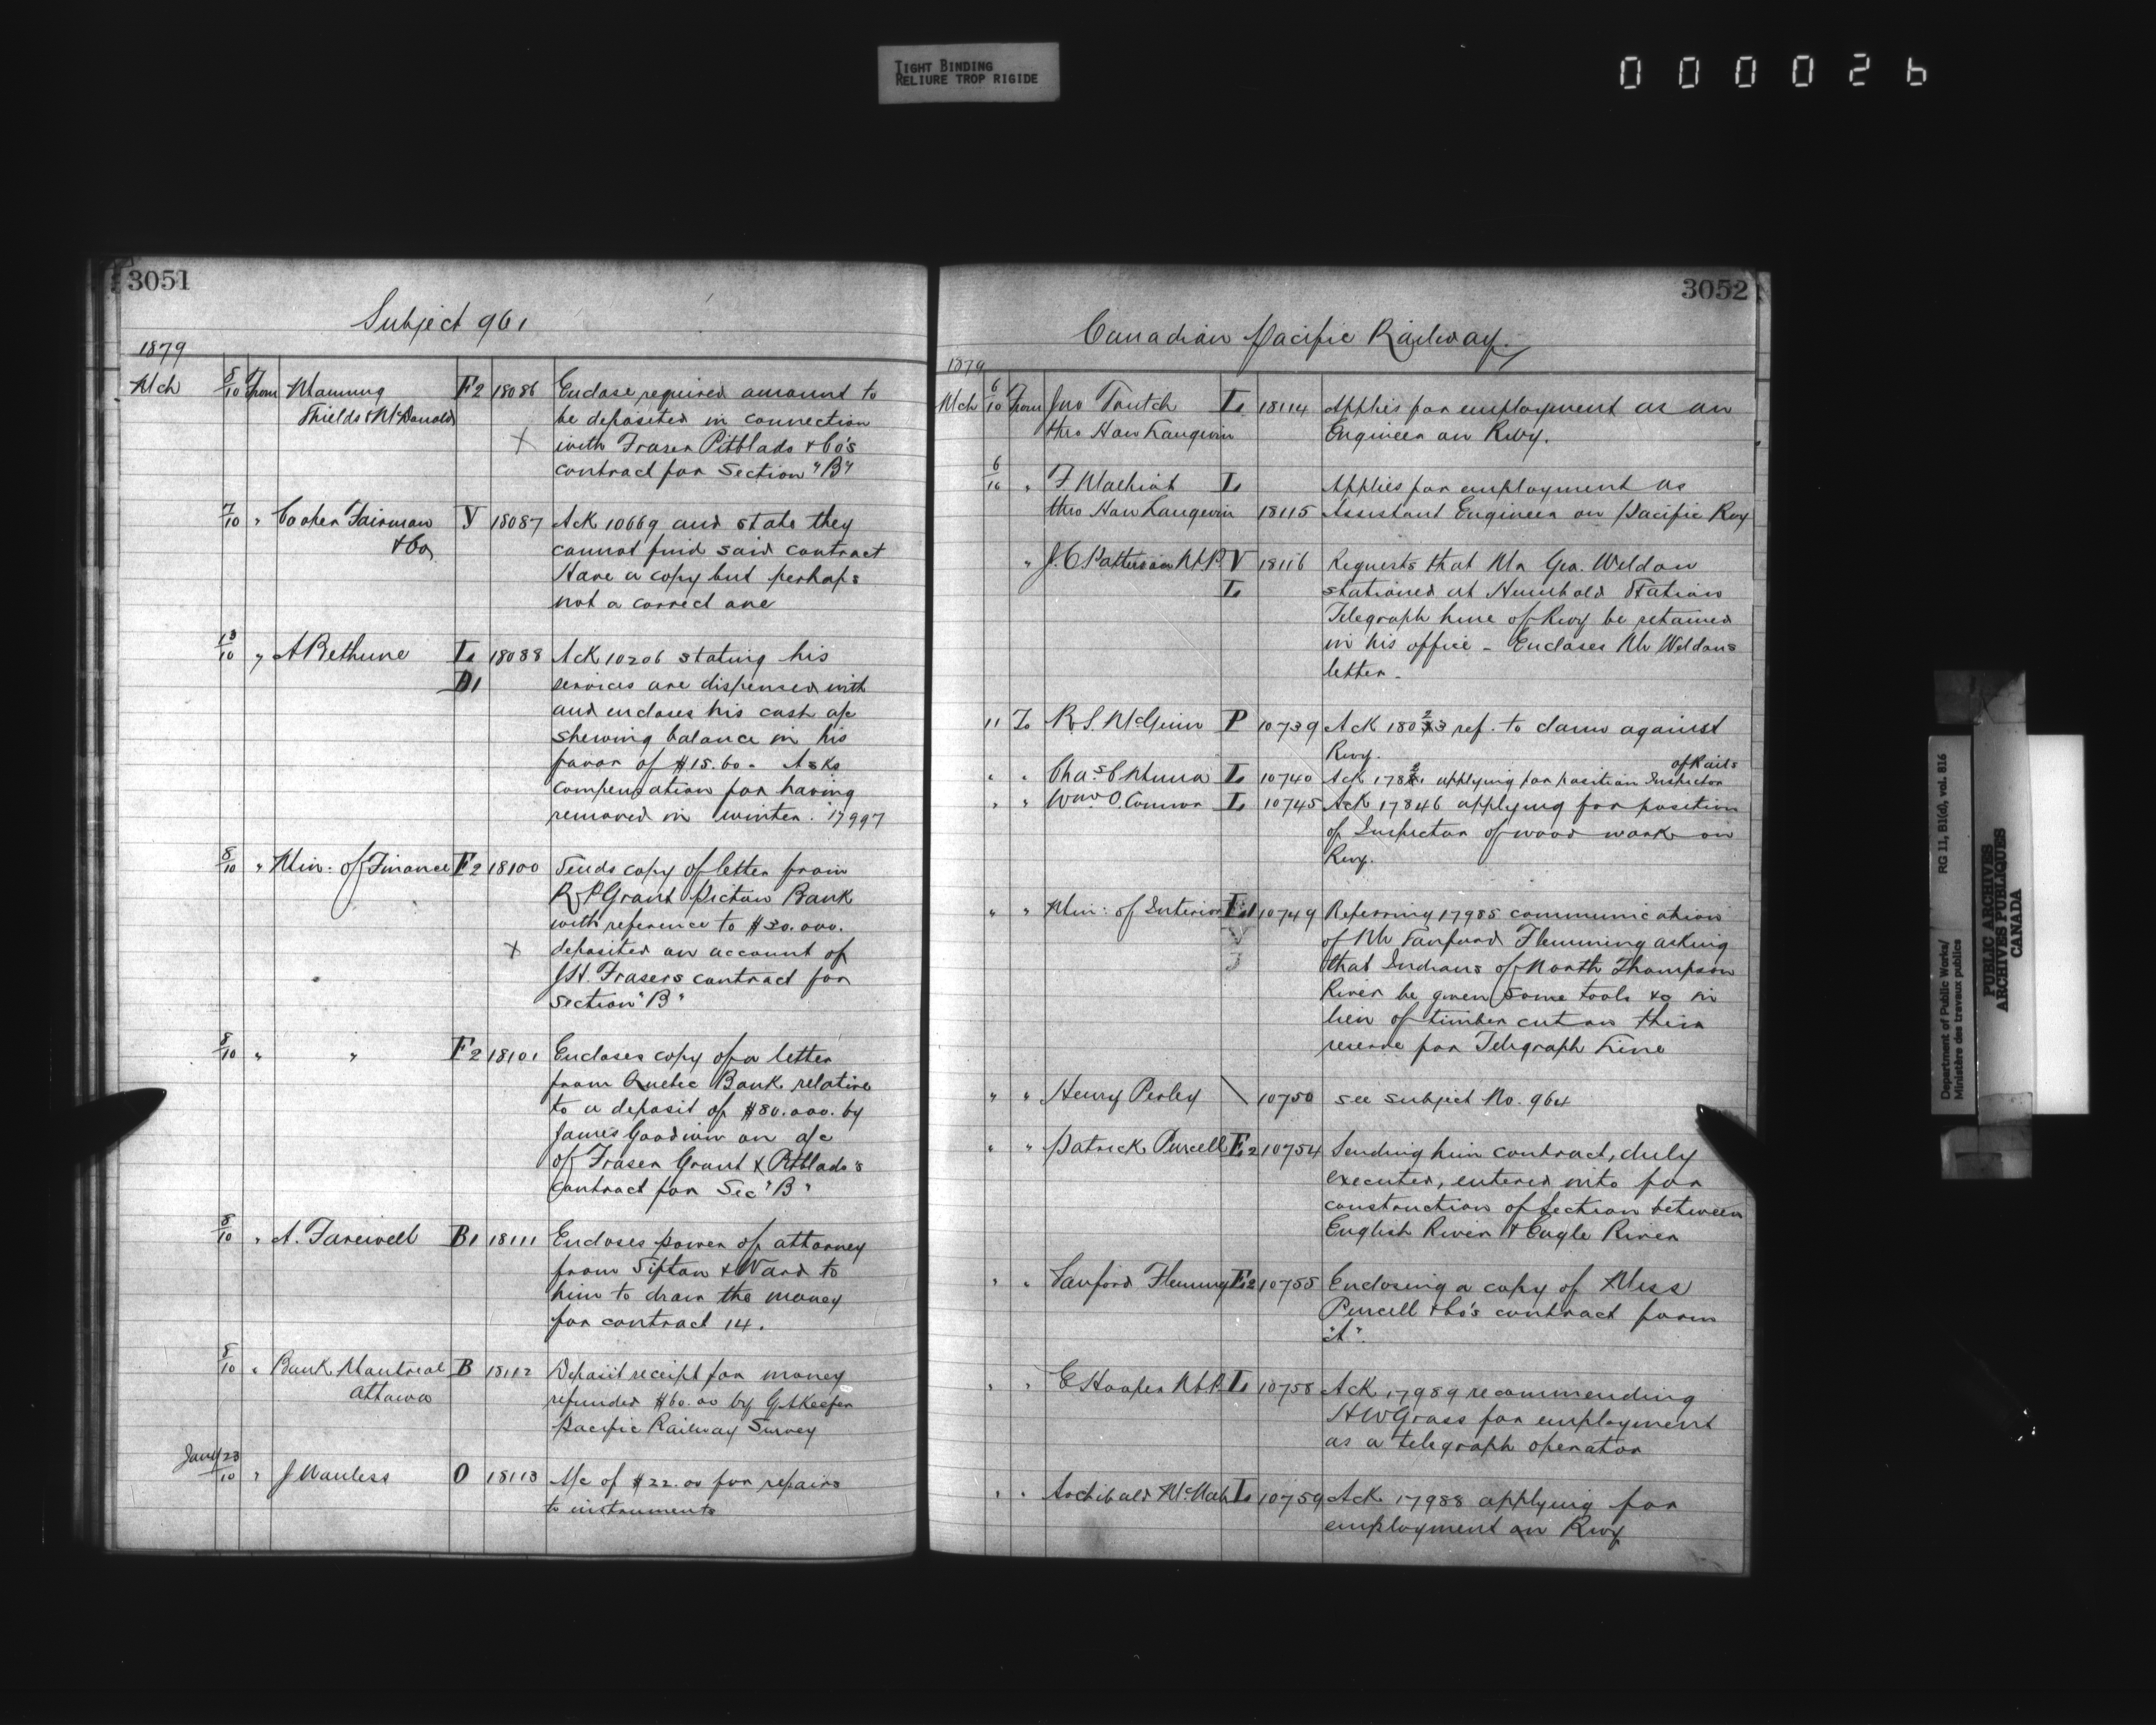 TIGHT BINDING
RELIURE TROP RIGIDE
000026
3051
Subject 961
1879
Mch 8/10 From Manning F2 18086 Enclose required amount to
Shields & McDonald be deposited in connection
X with Fraser Pitblado & Co's
contract for Section "B"
7/10 " Cooper Fairman V 18087 Ack 10669 and state they
& Co, cannot find said contract
Have a copy but perhaps
not a correct one
13/10 " A Bethune L 18088 Ack 10206 stating his
D1 services are dispensed with
and encloses his cash a/c
shewing balance in his
favor of $15.60 - Asks
compensation for having
removed in winter. 17997
8/10 " Min: of Finance F2 18100 Sends copy of letter from
R P Grant Pictou Bank
with reference to $30.000.
X deposited on account of
J.H. Frasers contract for
Section "B"
8/10 " " F2 18101 Encloses copy of a letter
from Quebec Bank relative
to a deposit of $80.000. by
James Goodwin on a/c
of Fraser Grant & Pitblado's
contract for Sec "B"
8/10 " A. Farewell B1 18111 Encloses power of attorney
from Sifton & Ward to
him to draw the money
for contract 14.
8/10 " Bank Montreal B 18112 Deposit receipt for money
Ottawa refunded $60.00 by G A Keefer
Pacific Railway Survey
Jany 23/10 " J Wanless O 18113 A/c of $22.00 for repairs
to instruments
3052
Canadian Pacific Railway.
1879
Mch 6/10 From Jno Trutch L 18114 Applies for employment as an
thro Hon Langevin Engineer on Rwy.
6/10 " F. L Applies for employment as
thro Hon Langevin 18115 Assistant Engineer on Pacific Rwy
" J. C Patterson M.P. V 18116 Requests that Mr Geo. Weldon
L stationed at Humbold Station
Telegraph line of Rwy be retained
in his office - Encloses Mr Weldons
letter -
11 To R S. McGinn P 10739 Ack 18023 ref. to claim against
Rwy. of Rails
" " Chas C L 10740 Ack applying for position Inspector
" " Wm O. Connor L 10745 Ack 17846 applying for position
of Inspector of wood work on
Rwy.
" " Min: of Interior 10749 Referring 17985 communication
V of Mr Sanford Flemming asking
3 that Indians of North Thompson
River be given some tools &c in
lieu of timber cut on their
reserve for Telegraph Line
" " Henry Perley \ 10750 see subject No. 964
" " Patrick Purcell F2 10754 Sending him contract, duly
executed, entered into for
construction of section between
English River & Eagle River
" " Sanford Fleming F2 10755 Enclosing a copy of Mess
Purcell & Co's contract form
"A".
" " E Hooper M.P. L 10758 Ack 17989 recommending
H W Grass for employment
as a telegraph operator
" " Archibald McNab L 10759 Ack 17988 applying for
employment on Rwy
Department of Public Works/
Ministère des travaux publics
RG 11, B1(d), vol. 816
PUBLIC ARCHIVES
ARCHIVES PUBLIQUES
CANADA